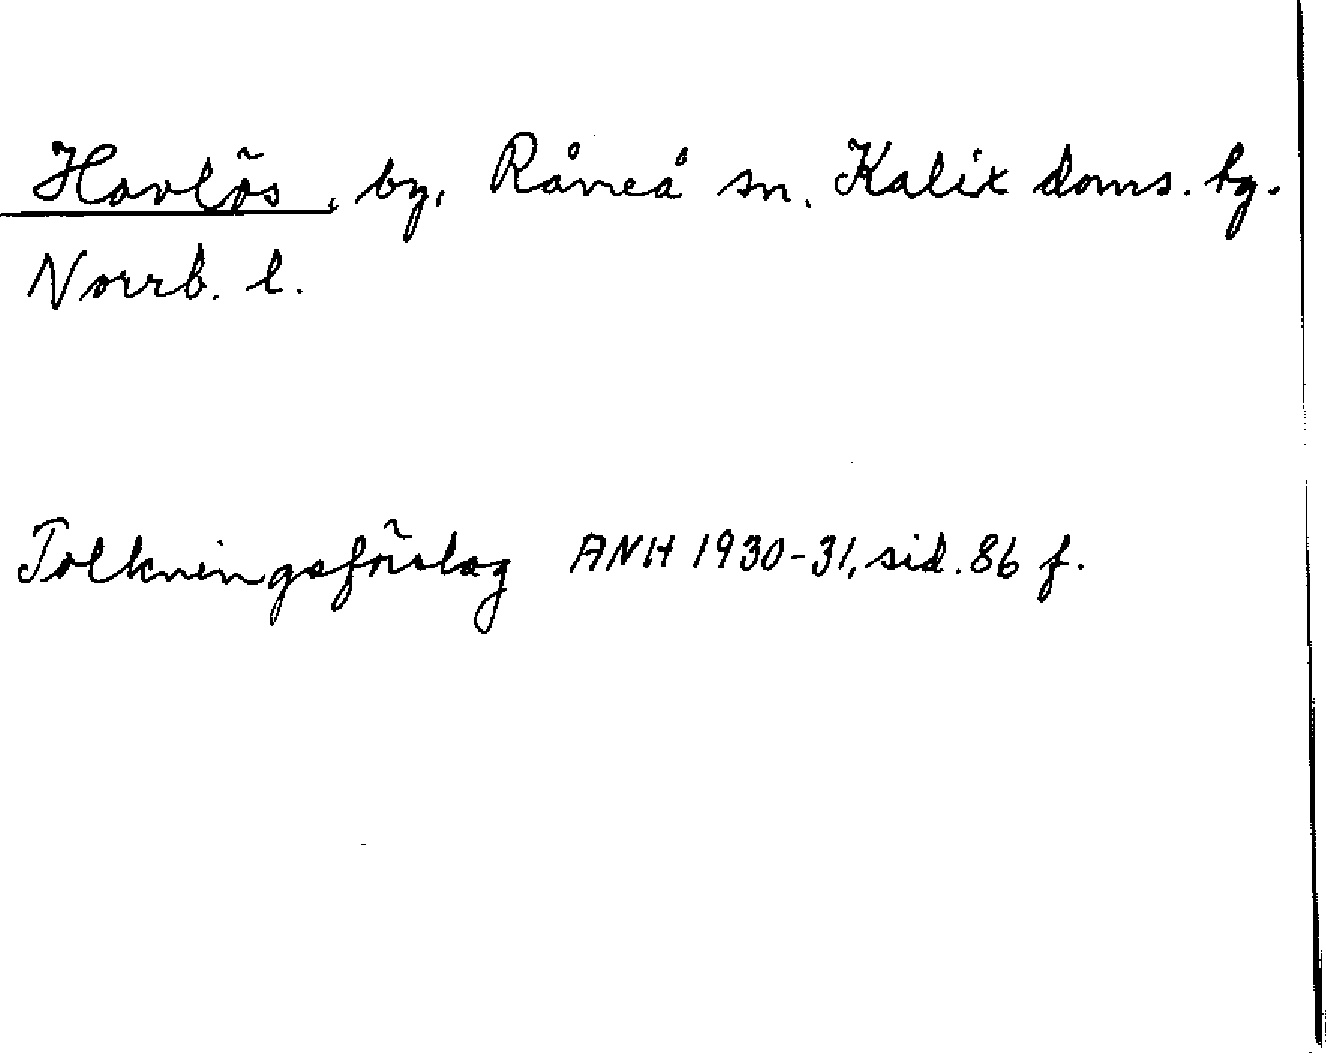 Havlös, by, Råneå sn. Kalix doms. hg.
Norrb. l.
Tolkningsförslag ANH 1930-31, sid. 86 f.